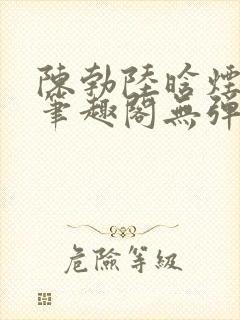 陳勃陸晗煙
筆趣閣無彈
危險等級